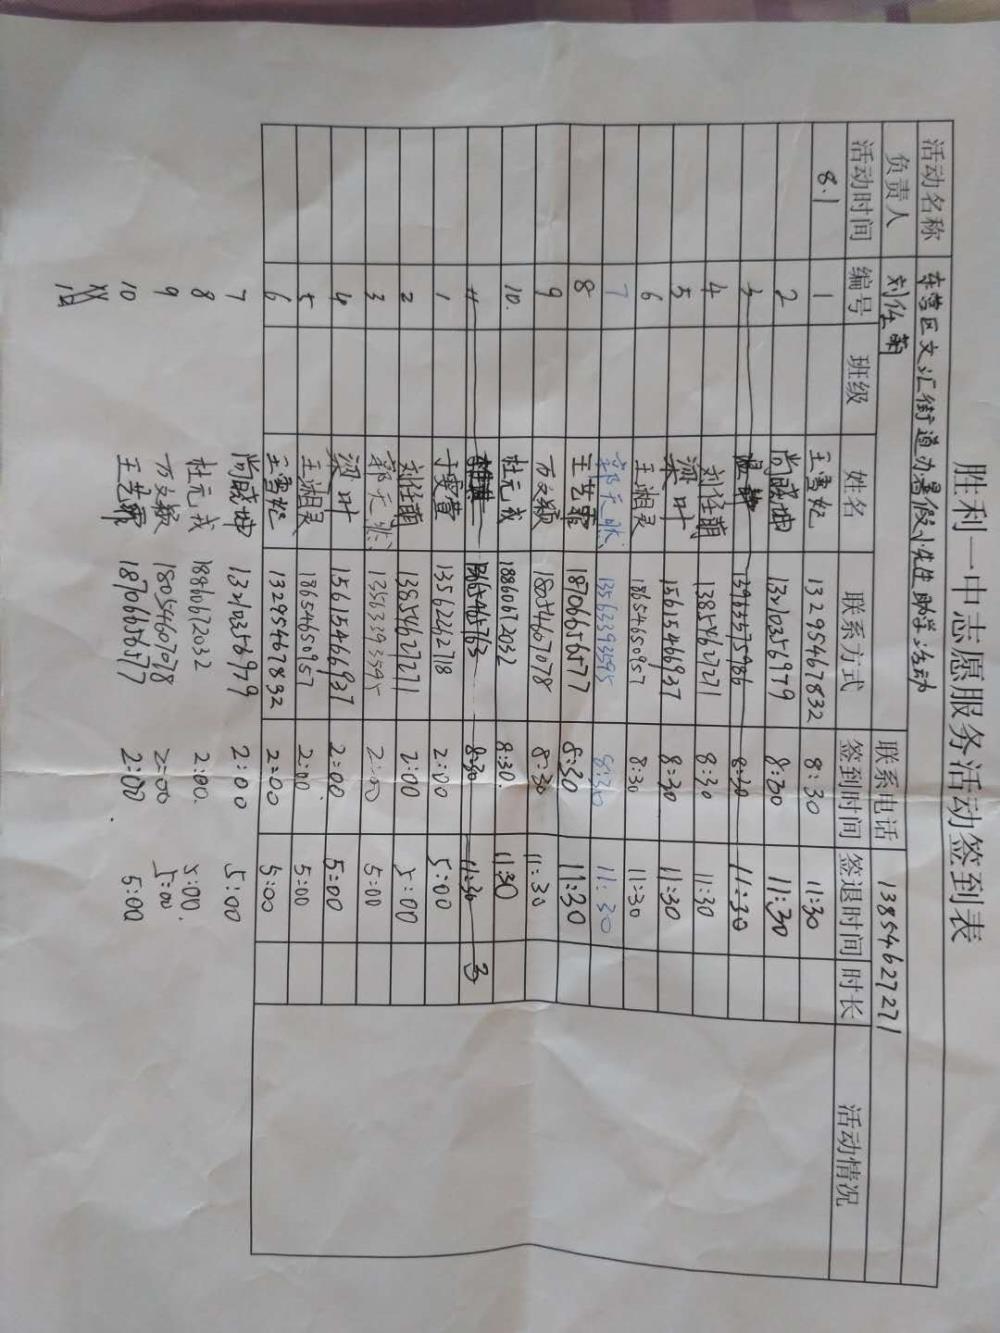 胜利一中志愿服务活动签到表
活动名称 东营区文汇街道办暑假小先生助学活动
负责人 刘任萌 联系电话 13854627271
活动时间 编号 班级 姓名 联系方式 签到时间 签退时间 时长 活动情况
8.1 1 王雪妃 13295467832 8:30 11:30
2 尚威坤 13210356979 8:30 11:30
3 8:30 11:30
4 刘任萌 13854627271 8:30 11:30
5 梁叶 15615466937 8:30 11:30
6 王湘灵 18654650957 8:30 11:30
7 郭天然 13563393595 8:30 11:30
8 王艺霏 18706656577 8:30 11:30
9 万文颖 18054607078 8:30 11:30
10. 杜元戎 18860612032 8:30. 11:30
11 8:30 11:30 3
1 于雯萱 13562262718 2:00 5:00
2 刘任萌 13854627271 2:00 5:00
3 郭天然 13563393595 2:00 5:00
4 梁叶 15615466937 2:00 5:00
5 王湘灵 18654650957 2:00 5:00
6 王雪妃 13295467832 2:00 5:00
7 尚威坤 13210356979 2:00 5:00
8 杜元戎 18860612032 2:00. 5:00.
9 万文颖 18054607078 2:00 5:00
10 王艺霏 18706656577 2:00. 5:00